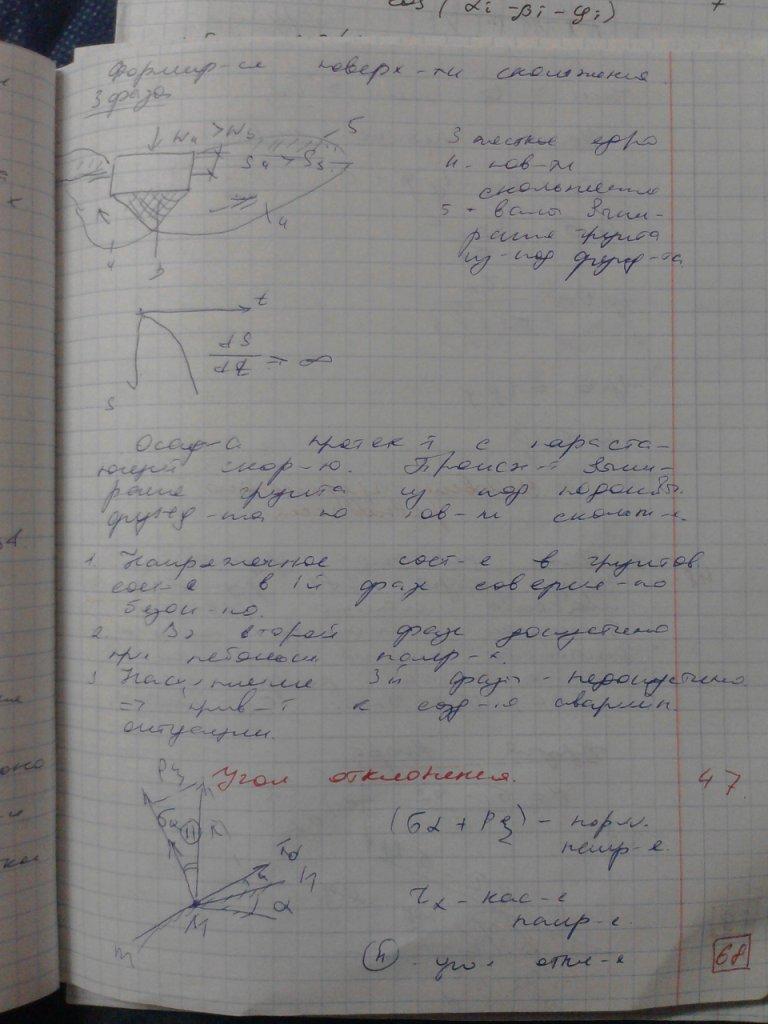 cos (αi -βi - φi)
Формир-е поверх-ти скольжения
3 фаза
Nа > Nb
S4 > S3
5
3 жесткое ядро
4 - пов-ти
скольжения
5 - валы выпи-
рания грунта
из-под фунд-та
4
4
3
t
dS
dt = ∞
S
Осад-а протек-т с нараста-
ющей скор-ю. Происх-т выпи-
рание грунта из под подошвы
фунд-та по пов-м скольж-я.
1. Напряженное сост-е в грунтов.
сост-е в 1й фазе соверше-но
безоп-но.
2. Во второй фазе допустимо
при небольш. напр-х.
3. Наступление 3й фазы - недопустимо
=> прив-т к созд-ю аварийн.
ситуации.
Угол отклонения. 47
Pξ
σα
M
m
n
α
τα
(σα + Pξ) - норм.
напр-е.
τα - кас-е
напр-е.
- угол откл-я
68